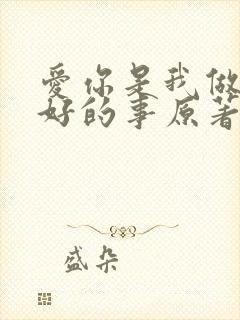 爱你是我做
好的事原著
盛朵